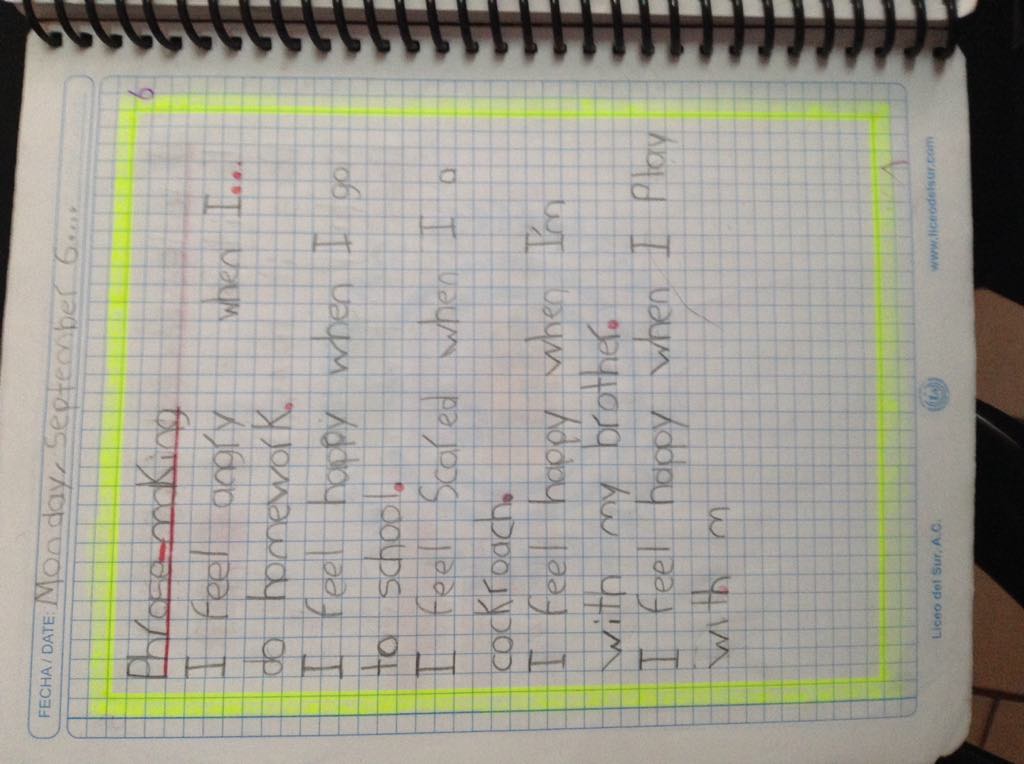 FECHA / DATE: Monday, September 6....
6
Phrase-mKing
I feel angry when I...
do homework.
I feel happy when I go
to school.
I feel Scared when I a
cockroach.
I feel happy when I'm
with my brother.
I feel happy when I Play
with m
Liceo del Sur, A.C. www.liceodelsur.com